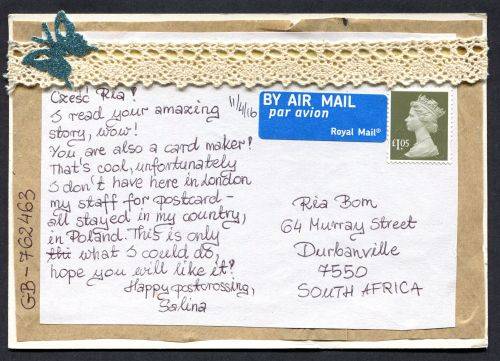 Cześć Ria!
11/4/16
I read your amazing
story, wow!
You are also a card maker?
That's cool, unfortunately
I don't have here in London
my staff for postcard -
all stayed in my country,
in Poland. This is only
thi what I could do,
hope you will like it?
Happy postcrossing,
Salina
GB-762463
BY AIR MAIL
par avion
Royal Mail®
£1.05
Ria Bom
64 Murray Street
Durbanville
7550
SOUTH AFRICA